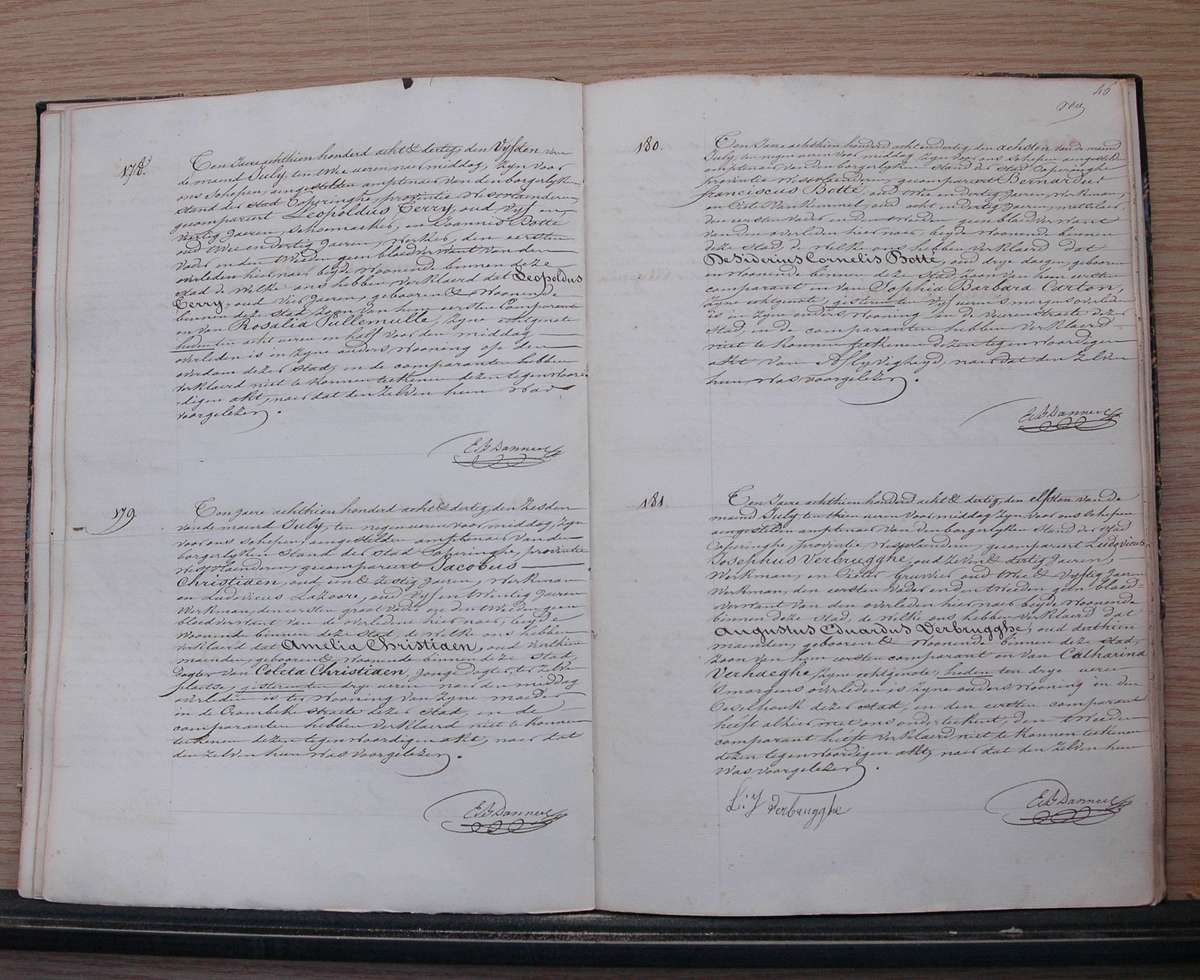 178.
Ten Jaere achthien honderd acht & dertig, den Vyfden van
de maend July, ten twee uren naer middag, zyn voor
ons Schepen, aengestelden amptenaer van den borgerlyken
stand der stad Poperinghe, provintie Westvlaenderen,
gecompareert Leopoldus Terry, oud vyf en
veertig Jaeren, Schoenmaeker, en Joannes Botte
oud twee en dertig Jaeren, Werkman, den eersten
vader en den tweeden geen bloedverwant van den
overleden hier naer, beyde woonende binnen deze
stad, de welke ons hebben verklaerd dat Leopoldus
Terry, oud vier Jaeren, geboren & woonende
binnen deze stad, zoon van hem eersten Comparant
en van Rosalia
heden ten acht uren en half voor den middag
overleden is in zyne ouders wooning op den
overdam dezer stad, en de comparanten hebben
verklaerd niet te konnen teekenen dezen tegenwoor-
digen akt, naer dat den zelven hun was
voorgelezen.
179
Ten Jaere achthien honderd acht & dertig, den Zesden
van de maend July, ten negen uren voor middag, zyn
voor ons Schepen, aengestelden amptenaer van den
borgerlyken stand der stad Poperinghe, provintie
Westvlaenderen, gecompareert Jacobus
Christiaen, oud een & zestig Jaeren, Werkman
en Ludovicus oud vyf en twintig Jaeren
Werkman, den eersten groot vader en den tweeden geen
bloedverwant van de overledene hier naer, beyde
woonende binnen deze stad, de welke ons hebben
verklaerd dat Amelia Christiaen, oud
maenden, geboren & woonende binnen deze stad,
dogter van Coleta Christiaen, Jonge dogter, ter zelve
plaetse, gisteren ten drye uren naer den middag
overleden is ter wooning van zyne moeder
in de Crombek straete dezer stad, en de
comparanten hebben verklaerd niet te konnen
teekenen dezen tegenwoordigen akt, naer dat
den zelven hun was voorgelezen.
46
180.
Ten Jaere achthien honderd acht en dertig, den achsten van de maend
July, ten negen uren voor middag, zyn voor ons Schepen aengestelden
amptenaer van den borgerlyken stand der stad Poperinghe
provintie Westvlaenderen, gecompareert Bernardus
franciscus Botte, oud twee en dertig Jaeren, Werkman,
en Piet oud acht en dertig Jaeren, metselaer
den eersten vader en den tweeden geen bloedverwant
van den overleden hier naer, beyde woonende binnen
deze stad, de welke ons hebben verklaerd dat
Desiderius Cornelis Botte, oud drye dagen, geboren
en woonende binnen deze stad, zoon van hem eersten
comparant en van Sophia Barbara Carton,
zyne echtgenote, gisteren ten vyf uren 's morgens overleden
is in zyne ouders wooning in de straete dezer
stad, en de comparanten hebben verklaerd
niet te konnen teekenen dezen tegenwoordigen
akt van Aflyvigheyd, naer dat den zelven
hun was voorgelezen.
181
Ten Jaere achthien honderd acht & dertig, den elfsten van de
maend July, ten thien uren voor middag zyn voor ons Schepen
aengestelden amptenaer van den borgerlyken stand der stad
Poperinghe, Provintie Westvlaenderen, gecompareert Ludovicus
Josephus Verbrugghe, oud zeven & dertig Jaeren,
Werkman, en Pieter oud twee & vyftig Jaeren
Werkman, den eersten vader en den tweeden geen bloed-
verwant van den overleden hier naer beyde woonende
binnen deze stad, de welke ons hebben verklaerd dat
Augustus Eduardus Verbrugghe, oud derthien
maenden, geboren & woonende binnen deze stad,
zoon van hem eersten comparant en van Catharina
Verhaeghe, zyne echtgenote, heden ten drye uren
's morgens overleden is zyne ouders wooning in den
dezer stad, en den eersten comparant
heeft alhier met ons onderteekent, den tweeden
comparant heeft verklaerd niet te konnen teekenen
dezen tegenwoordigen akt, naer dat den zelven hun
was voorgelezen.
L: J Verbrugghe